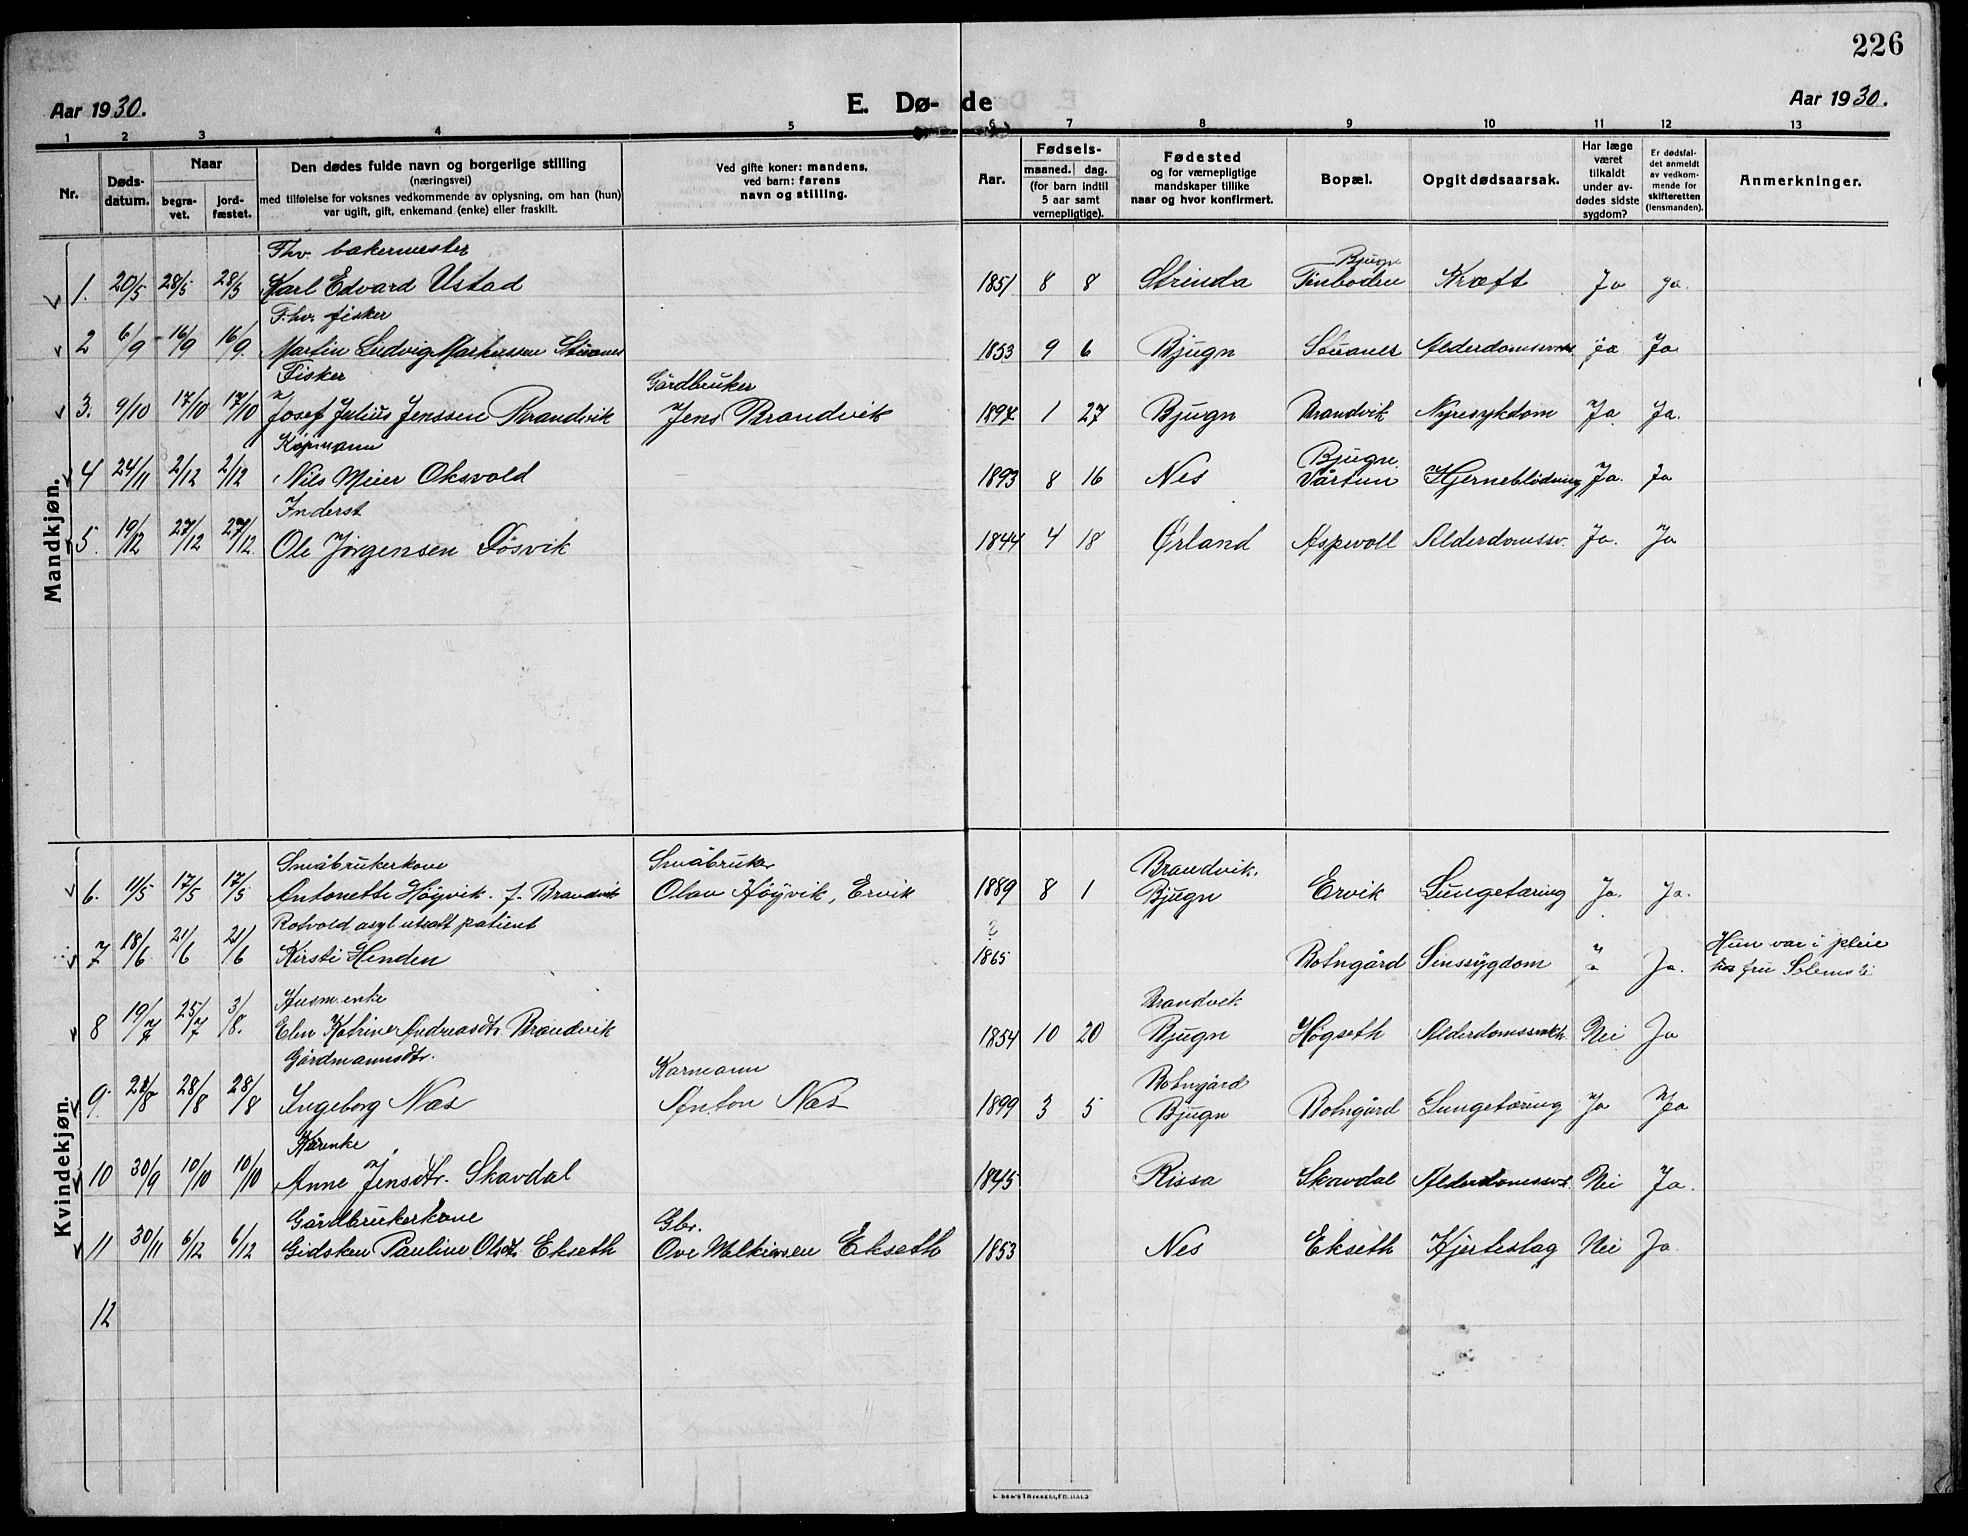 226
Aar 1930. E. Dø- de Aar 1930.
1 2 3 4 5 6 7 8 9 10 11 12 13
Nr.
Døds-
datum.
Naar
begra-
vet.
jord-
fæstet.
Den dødes fulde navn og borgerlige stilling
(næringsvei)
med tilføielse for voksnes vedkommende av oplysning, om han (hun)
var ugift, gift, enkemand (enke) eller fraskilt.
Ved gifte koner: mandens,
ved barn: farens
navn og stilling.
Aar.
Fødsels-
maaned. dag.
(for barn indtil
5 aar samt
vernepligtige).
Fødested
og for værnepligtige
mandskaper tillike
naar og hvor konfirmert.
Bopæl.
Opgit dødsaarsak.
Har læge
været
tilkaldt
under av-
dødes sidste
sygdom?
Er dødsfal-
det anmeldt
av vedkom-
mende for
skifteretten
(lensmanden).
Anmerkninger.
Mandkjøn.
Fhv. bakermester Bjugn
1. 20/5 28/5 28/5 Karl Edvard Ustad 1851 8 8 Strinda Tinboden Kræft Ja ja.
Fhv. fisker
2 6/9 16/9 16/9. Martin Ludvig Markussen 1853 9 6 Bjugn ja Ja
Fisker Gårdbruker
3. 9/10 17/10 17/10 Josef Julius Jenssen Brandvik Jens Brandvik 1897 1 27 Bjugn Brandvik Nyresykdom Ja Ja.
Kjøpmann Bjugn
4 24/11 2/12 2/12 Nils Meier Oksvold 1893 8 16 Nes Vårtun Hjerneblödning Ja. Ja
Inderst
5. 19/12 27/12 27/12. Ole Jørgensen Døsvik 1844 4 18 Ørland Aspvoll Alderdomssv. Ja. Ja
Kvindekjøn.
Småbrukerkone Småbruker Brandvik.
6. 11/5 17/5 17/5 Antonette Höyvik. f. Brandvik Olav Höyvik, Ervik 1889 8 1 Bjugn Ervik Lungetæring Ja. Ja.
Rotvold asyl utsatt patient ?
7 18/6 21/6 21/6 Kirsti Henden 1865 Botngård Sinssygdom Ja Ja. Hun var i pleie
hos fru
Husm. enke Brandvik
8 19/7 25/7 3/8. Elen Katrine Andreasdtr. Brandvik 1854 10 20 Bjugn Høgseth Nei Ja
Gårdmannsdtr. Karmann Botngård
9. 28/8 28/8 Ingeborg Næs Anton Næs 1899 3 5 Bjugn Botngård Lungetæring Ja Ja
Kårenke
10 30/9 10/10 10/10 Anne Jensdtr. Skavdal 1845 Rissa Skavdal Nei Ja.
Gårdbrukerkone Gbr.
11 30/11 6/12 6/12 Gidsken Pauline Olsdtr. Ekseth Ove Ekseth 1853 Nes Ekseth Hjerteslag Nei Ja.
12